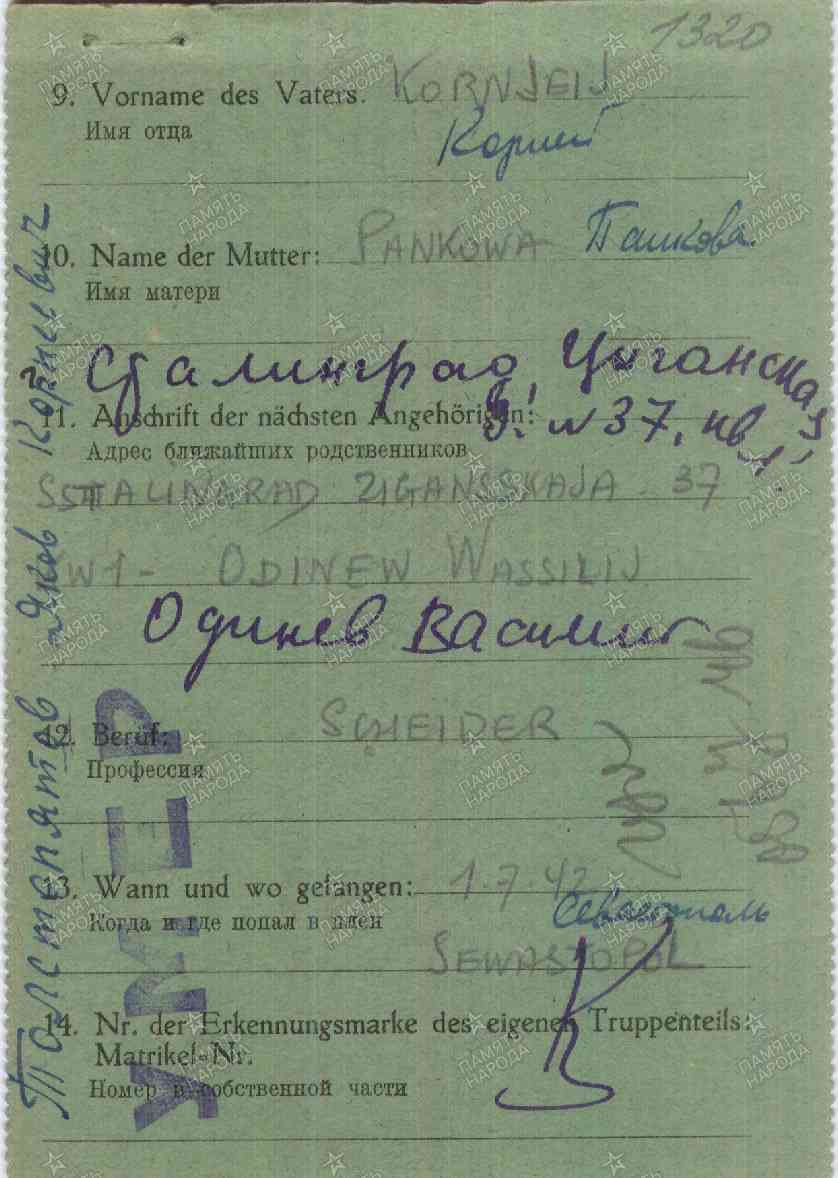 1320
9. Vorname des Vaters: KORNJEIJ
Имя отца
Корней
10. Name der Mutter: PANKOWA Панкова.
Имя матери
г. Сталинград, Циганская
11. Anschrift der nächsten Angehörigen: № 37, кв 1
Адрес ближайших родственников
STALINGRAD ZIGANSSKAJA 37
KW 1 - ODINEW WASSILIJ
Одинев Василий
12. Beruf: SCHEIDER
Профессия
13. Wann und wo gefangen: 1.7.42
Когда и где попал в плен
Севастополь
SEWASTOPOL
14. Nr. der Erkennungsmarke des eigenen Truppenteils:
Matrikel-Nr.
Номер в собственной части
Яков Корниевич
УМЕР
ПАМЯТЬ НАРОДА